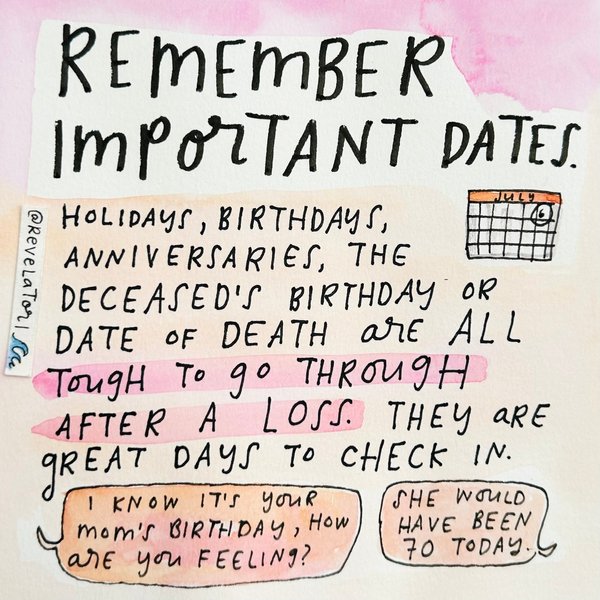 REMEMBER
IMPORTANT DATES.
JULY
6
@REVELATORI
HOLIDAYS, BIRTHDAYS,
ANNIVERSARIES, THE
DECEASED'S BIRTHDAY OR
DATE OF DEATH ARE ALL
TOUGH TO GO THROUGH
AFTER A LOSS. THEY ARE
GREAT DAYS TO CHECK IN.
I KNOW IT'S YOUR
MOM'S BIRTHDAY, HOW
ARE YOU FEELING?
SHE WOULD
HAVE BEEN
70 TODAY.